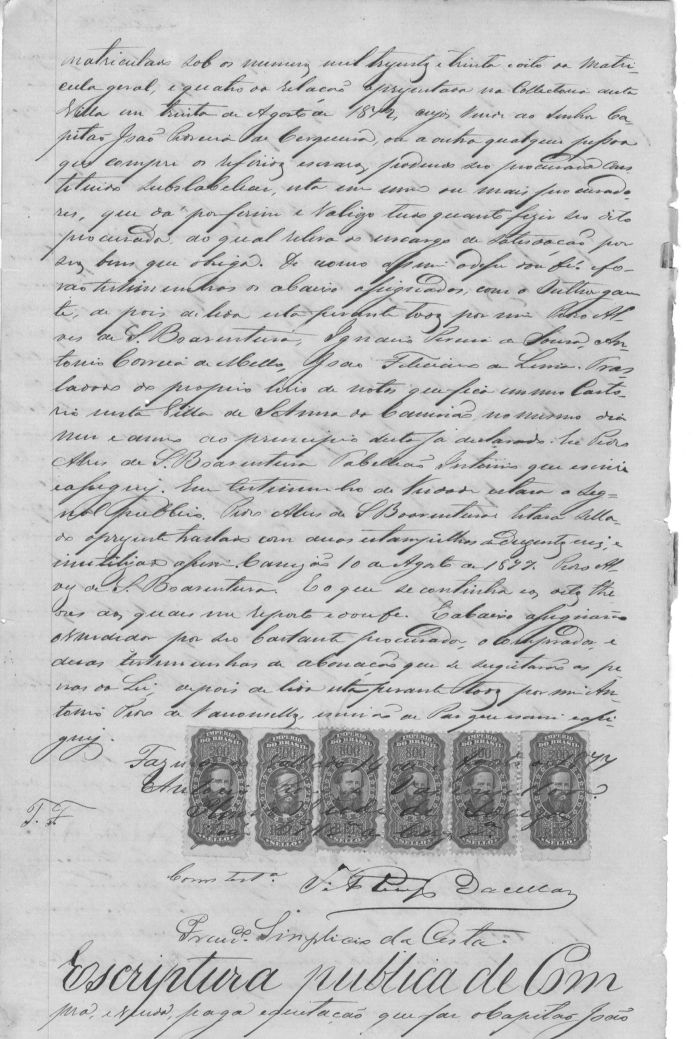 matriculados sob os numeros mil trezentos e trinta e oito da Matri-
cula geral, e quatro da relação apresentada na Collectoria desta
Villa em trinta de Agosto de 1872, cujos vende ao Senhor Ca-
pitão João Pereira de Cerqueira, ou a outra qualquer pessoa
que compre os referidos escravos, podendo seo procurador cons
tituido substabelecer esta em um ou mais procurado-
res, que dá por firme e valioso tudo quanto fizer seo dito
procurador, ao qual releva do encargo de satisdação por
seos bens que obriga. De como assim o disse dou fé: e fo-
rão testemunhas os abaixo assignados, com o outhorgan
te, depois de lida esta perante todos por mim Pedro Al-
ves de S. Boaventura, Ignacio Pereira de Souza, An-
tonio Correia de Mello, João Feliciano de Lima. Tras-
ladada do proprio livro de notas que fica em meo Carto-
rio nesta Villa de Santanna do Camisão no mesmo dia
mez e anno ao principio desta já declarado. Eu Pedro
Alves de S. Boaventura Tabellião Interino que escrevi
e assignei. Em testemunho de verdade estava o sig-
nal publico. Pedro Alves de S. Boaventura. Estava sella-
do o presente traslado com duas estampilhas de duzentos reis, e
inutilisadas assim: Camisão 10 de Agosto de 1877. Pedro Al-
ves de S. Boaventura. E o que se continha em dito
aos quais me reporto e dou fé. E abaixo assignarão
o vendedor por seo bastante procurador, o comprador, e
duas testemunhas de abonação que se sugeitarão as pe-
nas da Lei, depois de lida esta perante todos por mim An-
tonio Pedro de Vasconcellos, escrivão de Paz que escrevi e assi-
gnei.
IMPERIO DO BRASIL 200 SELLO
IMPERIO DO BRASIL SELLO
IMPERIO DO BRASIL SELLO
IMPERIO DO BRASIL SELLO
IMPERIO DO BRASIL SELLO
IMPERIO DO BRASIL SELLO
de 1877
Como testª
Francº Simplicio da Costa
Escriptura publica de Com
pra, e venda, paga e quitação, que faz o Capitão João